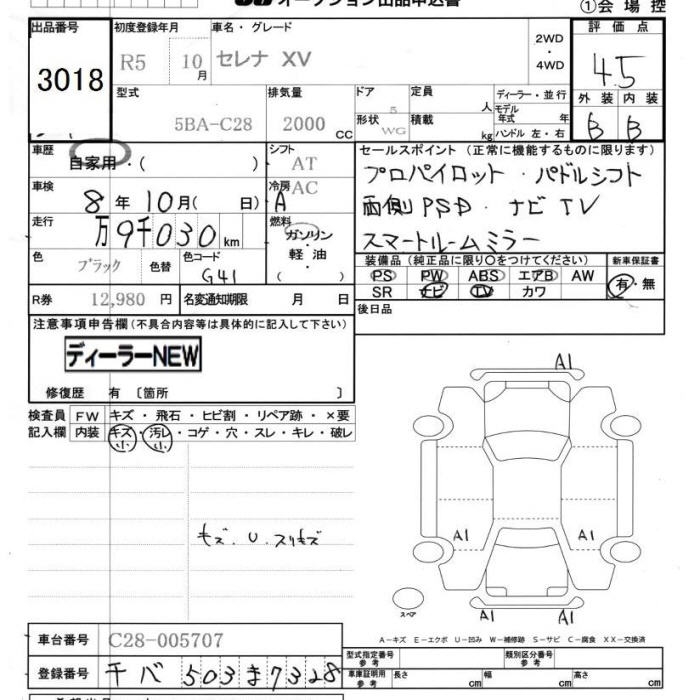 オークション出品申込書
①会場控
出品番号 初度登録年月 車名・グレード 評価点
3018 R5 10月 セレナ XV 2WD・4WD 4.5
型式 排気量 ドア 定員 ディーラー・並行 外装 内装
5BA-C28 2000 CC 5 人 モデル年式 年 B B
形状 WG 積載 kg ハンドル 左・右
車歴 自家用・( ) シフト AT セールスポイント(正常に機能するものに限ります)
車検 8年10月( 日) 冷房 AC A プロパイロット・パドルシフト
両側PSD・ナビTV
走行 万9千030km 燃料 ガソリン スマートルームミラー
色 ブラック 色替 色コード G41 軽・油 ( ) 装備品(純正品に限り○をつけてください) 新車保証書
PS PW ABS エアB AW 有・無
R券 12,980円 名変通知期限 月 日 SR ナビ TV カワ
注意事項申告欄(不具合内容等は具体的に記入して下さい) 後日品
ディーラーNEW
修復歴 有 〔箇所 〕
A1
検査員 FW キズ・飛石・ヒビ割・リペア跡・×要
記入欄 内装 キズ・汚レ・コゲ・穴・スレ・キレ・破レ
小 小
キズ.U.スリキズ
A1 A1
スペア
A1 A1
A-キズ E-エクボ U-凹み W-補修跡 S-サビ C-腐食 XX-交換済
車台番号 C28-005707
型式指定番号 参考 類別区分番号 参考
登録番号 千バ 503ま7328 車庫証明用 参考 長さ cm 幅 cm 高さ cm